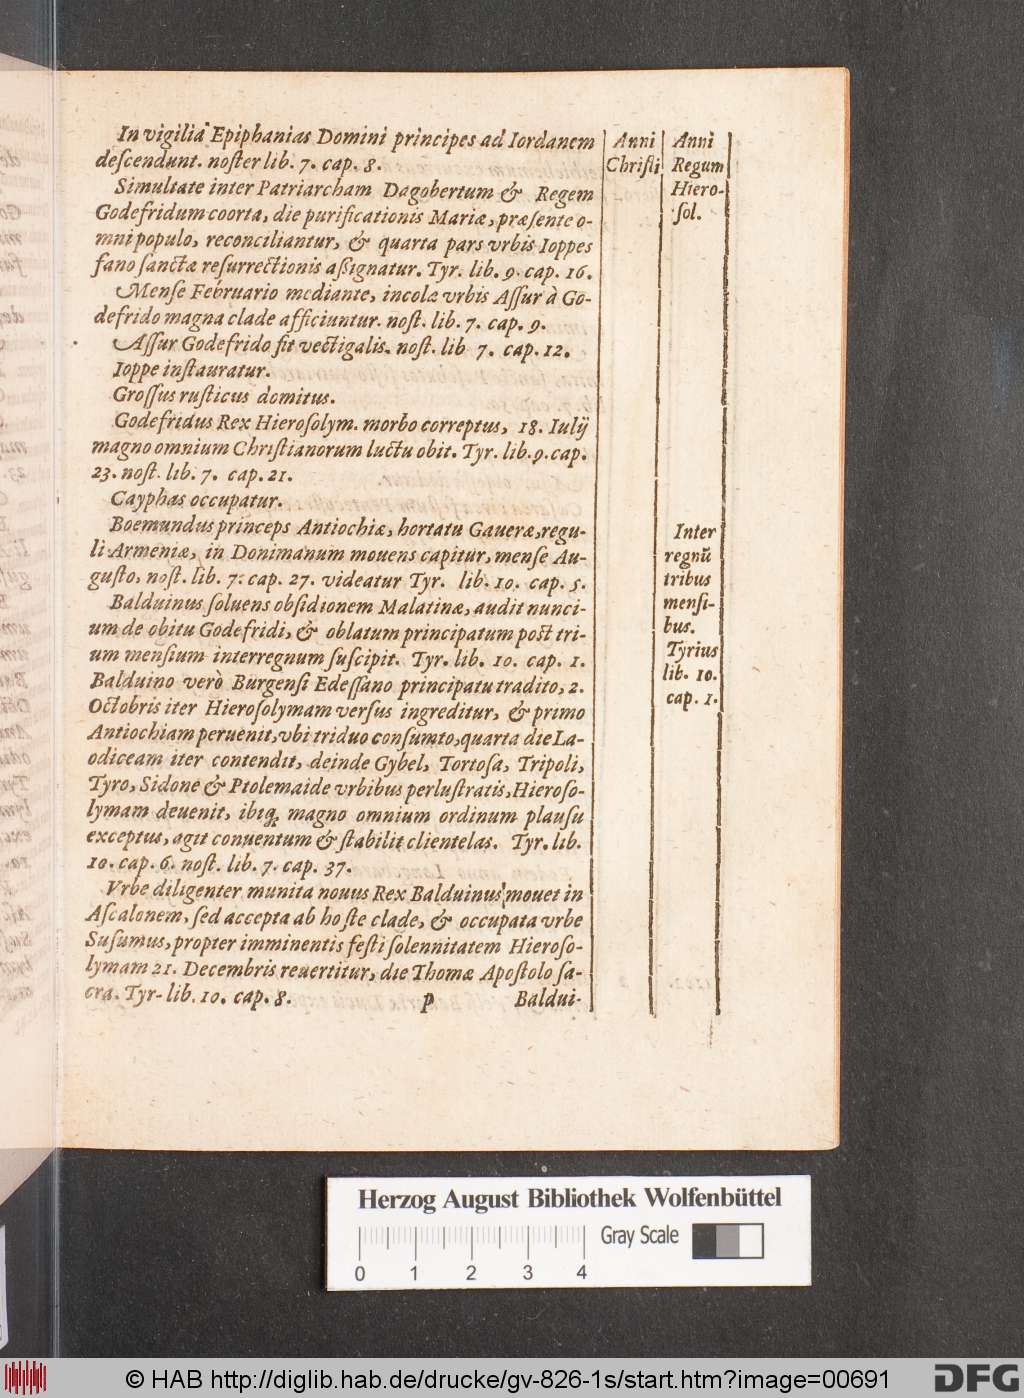 In vigiliâ Epiphanias Domini principes ad Iordanem
deſcendunt. noſter lib. 7. cap. 8.
Simultate inter Patriarcham Dagobertum & Regem
Godefridum coorta, die purificationis Mariæ, præſente o-
mni populo, reconciliantur, & quarta pars vrbis Ioppes
fano ſanctæ reſurrectionis aßignatur. Tyr. lib. 9. cap. 16.
Menſe Februario mediante, incolæ vrbis Aſſur à Go-
defrido magna clade afficiuntur. noſt. lib. 7. cap. 9.
Aſſur Godefrido fit vectigalis. noſt. lib 7. cap. 12.
Ioppe inſtauratur.
Groſſus ruſticus domitus.
Godefridus Rex Hieroſolym. morbo correptus, 18. Iulij
magno omnium Chriſtianorum luctu obit. Tyr. lib. 9. cap.
23. noſt. lib. 7. cap. 21.
Cayphas occupatur.
Boemundus princeps Antiochiæ, hortatu Gaueræ, regu-
li Armeniæ, in Donimanum mouens capitur, menſe Au-
guſto, noſt. lib. 7. cap. 27. videatur Tyr. lib. 10. cap. 5.
Balduinus ſoluens obſidionem Malatinæ, audit nunci-
um de obitu Godefridi, & oblatum principatum poſt tri-
um menſium interregnum ſuſcipit. Tyr. lib. 10. cap. 1.
Balduino verò Burgenſi Edeſſano principatu tradito, 2.
Octobris iter Hieroſolymam verſus ingreditur, & primo
Antiochiam peruenit, vbi triduo conſumto, quarta die La-
odiceam iter contendit, deinde Gybel, Tortoſa, Tripoli,
Tyro, Sidone & Ptolemaide vrbibus perluſtratis, Hieroſo-
lymam deuenit, ibiq; magno omnium ordinum plauſu
exceptus, agit conuentum & ſtabilit clientelas. Tyr. lib.
10. cap. 6. noſt. lib. 7. cap. 37.
Vrbe diligenter munita nouus Rex Balduinus mouet in
Aſcalonem, ſed accepta ab hoſte clade, & occupata vrbe
Suſumus, propter imminentis feſti ſolennitatem Hieroſo-
lymam 21. Decembris reuertitur, die Thomæ Apoſtolo ſa-
cra. Tyr- lib. 10. cap. 8.
p Baldui-
Anni
Chriſti
Anni
Regum
Hiero-
ſol.
Inter
regnũ
tribus
menſi-
bus.
Tyrius
lib. 10.
cap. 1.
Herzog August Bibliothek Wolfenbüttel
Gray Scale
0 1 2 3 4
© HAB http://diglib.hab.de/drucke/gv-826-1s/start.htm?image=00691
DFG